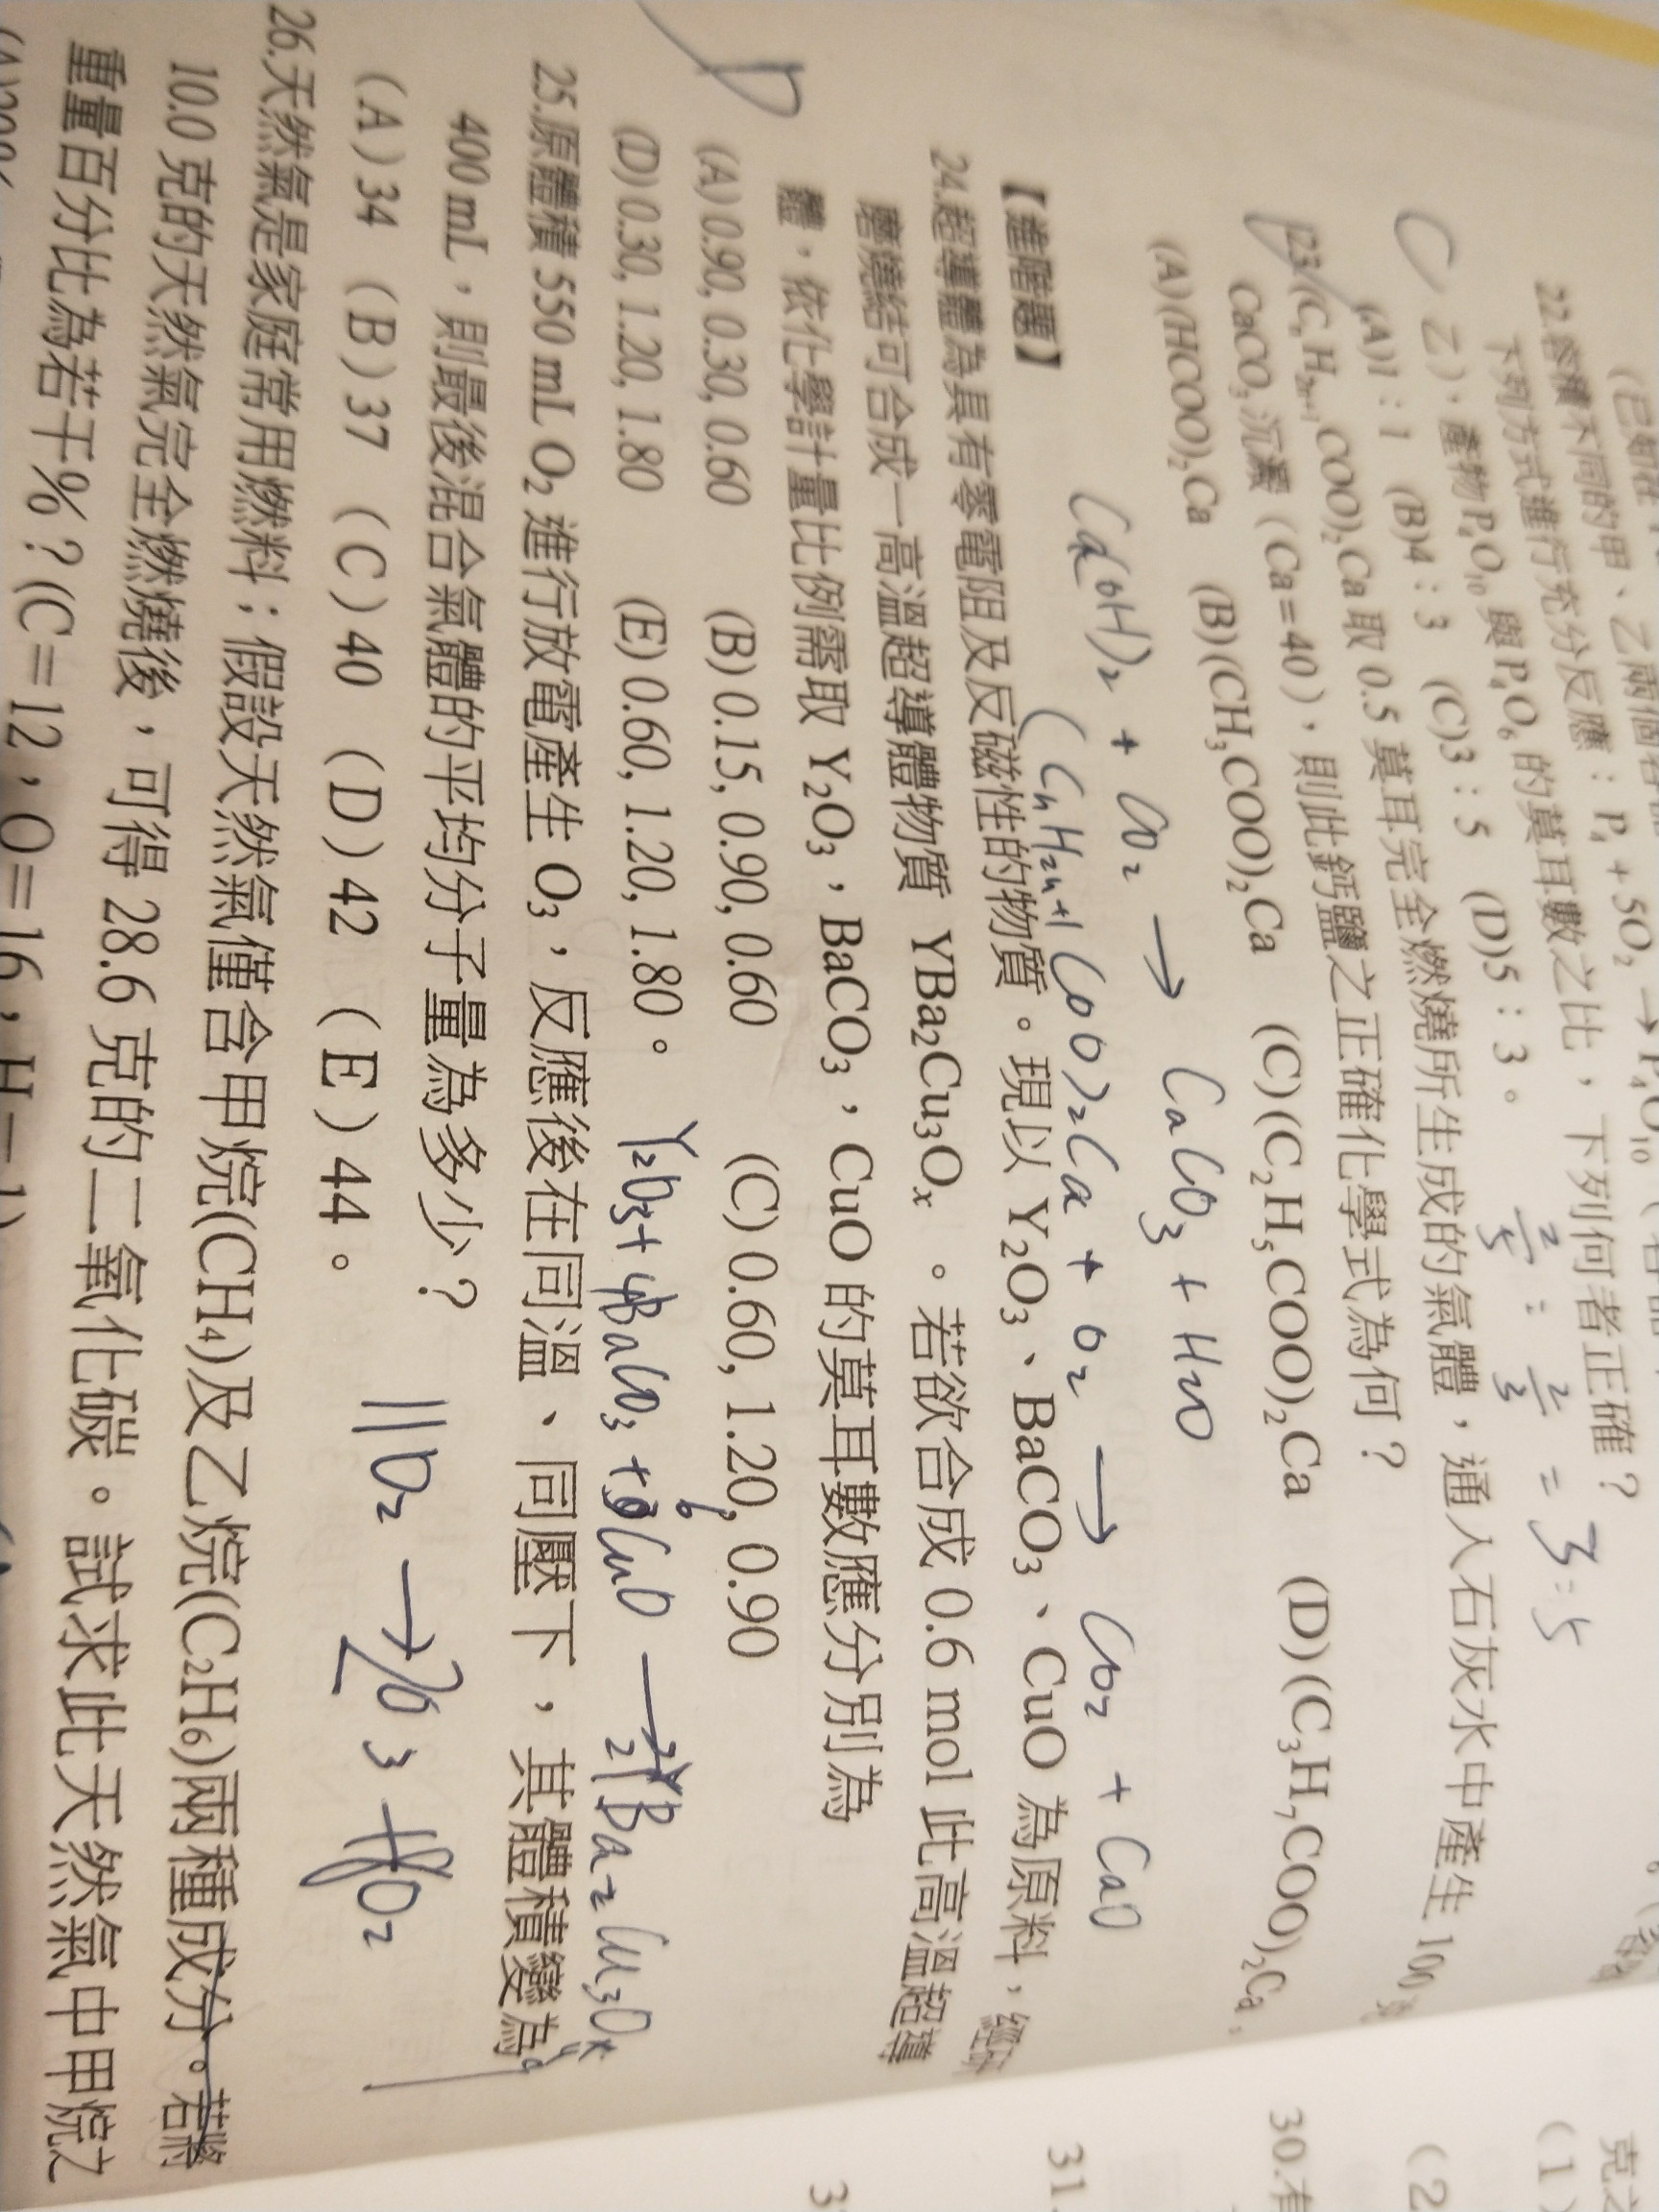 22.容積不同的甲、乙兩個容器 P₄ + 5O₂ → P₄O₁₀
下列方式進行充分反應:
乙),產物P₄O₁₀ 與 P₄O₆ 的莫耳數之比,下列何者正確?
(A)1:1 (B)4:3 (C)3:5 (D)5:3。
2/5 : 2/3 = 3:5
C
23.(CₙH₂ₙ₊₁COO)₂Ca 取 0.5 莫耳完全燃燒所生成的氣體,通入石灰水中產生 100
CaCO₃沉澱(Ca=40),則此鈣鹽之正確化學式為何?
(A)(HCOO)₂Ca (B)(CH₃COO)₂Ca (C)(C₂H₅COO)₂Ca (D)(C₃H₇COO)₂Ca
Ca(OH)₂ + CO₂ → CaCO₃ + H₂O
(CnH2n+1COO)₂Ca + O₂ → CO₂ + CaO
【進階題】
24.超導體為具有零電阻及反磁性的物質。現以 Y₂O₃、BaCO₃、CuO 為原料,經研
磨燒結可合成一高溫超導體物質 YBa₂Cu₃Oₓ 。若欲合成 0.6 mol 此高溫超導
體,依化學計量比例需取 Y₂O₃,BaCO₃,CuO 的莫耳數應分別為
(A) 0.90, 0.30, 0.60 (B) 0.15, 0.90, 0.60 (C) 0.60, 1.20, 0.90
(D) 0.30, 1.20, 1.80 (E) 0.60, 1.20, 1.80。
D
Y₂O₃ + 4BaCO₃ + 6CuO → 2YBa₂Cu₃Ox
25.原體積 550 mL O₂ 進行放電產生 O₃,反應後在同溫、同壓下,其體積變為
400 mL,則最後混合氣體的平均分子量為多少?
(A) 34 (B) 37 (C) 40 (D) 42 (E) 44。
11O₂ → O₃ + O₂
26.天然氣是家庭常用燃料;假設天然氣僅含甲烷(CH₄)及乙烷(C₂H₆)兩種成分。若將
10.0 克的天然氣完全燃燒後,可得 28.6 克的二氧化碳。試求此天然氣中甲烷之
重量百分比為若干%?(C=12,O=16,H=1)
30.有
31.